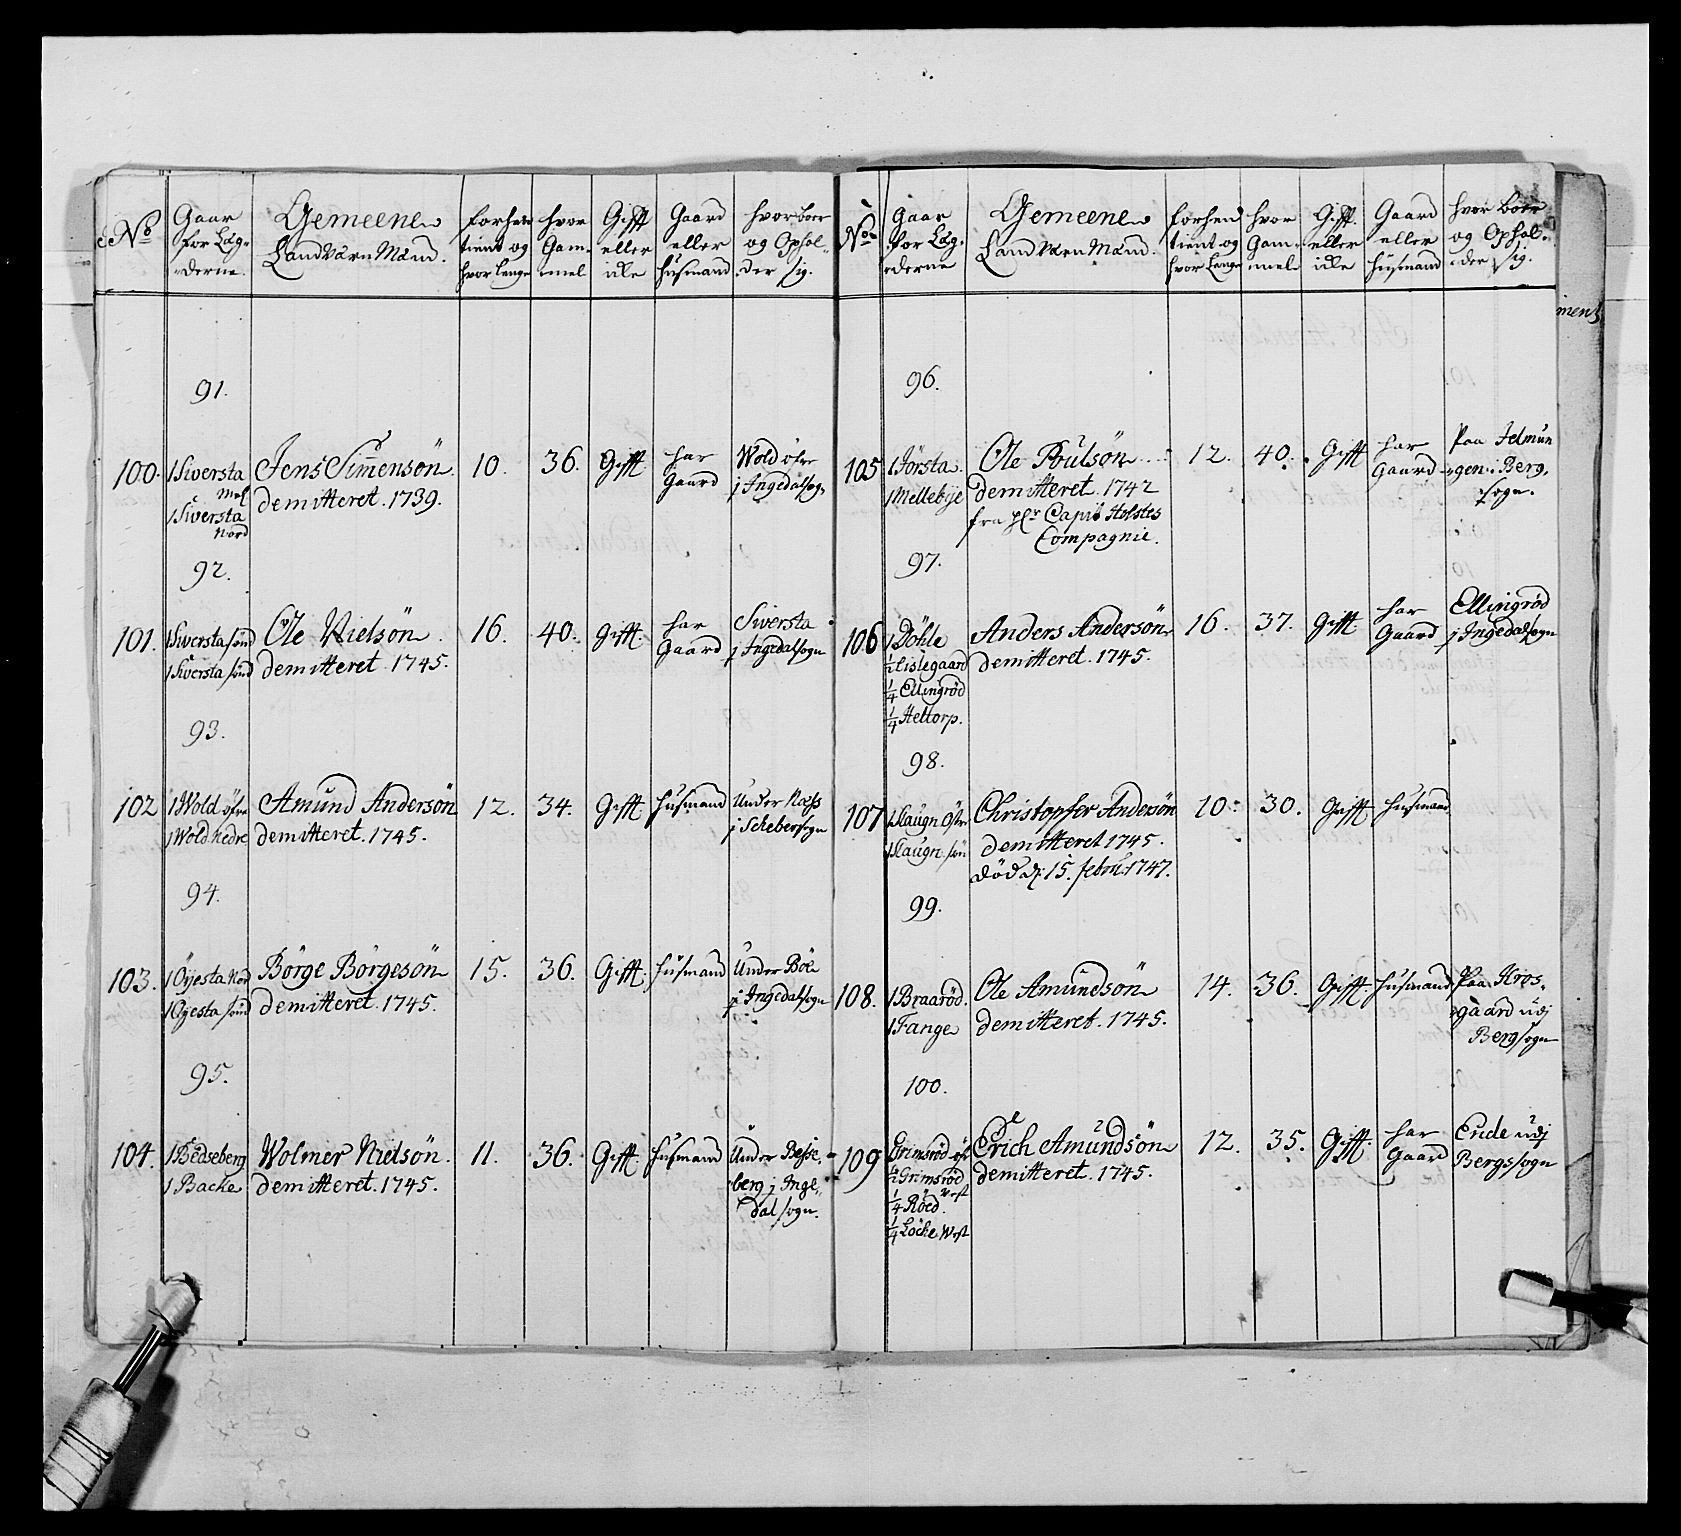 No
Gaar
for Læg-
derne.
Gemeene
Landværn Mænd.
forhen
tient og
hvor lenge
hvor
Gam-
mel
Gifft
eller
icke
Gaard
eller
Husmand
hvor boer
og Ophol-
der sig.
91.
100.
1 Siversta
Mel
1 Siversta
Nord
Jens Simensön
demitteret. 1739.
10.
36.
Gifft
har
Gaard
Wold öfre
j Ingedalsogn
92.
101.
1 Siversta sönd
1 Siversta sönd
Ole Nielsön.
demitteret. 1745.
16.
40.
Gifft.
har
Gaard
Siversta
j Ingedalsogn
93.
102
1 Wold öfre
1 Wold Nedre
Amund Andersön
demitteret. 1745.
12.
34.
Gifft
Husmand
Under Næss
j Schebersogn
94.
103.
1 Öyesta Nor
1 Öyesta sönd
Börge Börgesön
demitteret. 1745.
15.
36.
Gifft.
Husmand
Under Böe
j Ingedalsogn
95.
104.
1 Bedseberg
1 Backe
Wolmer Nielsön.
demitteret. 1745.
11.
36.
Gifft
Husmand
Under Besse-
berg j Inge-
dal sogn.
No
Gaar
for Læg-
derne
Gemeene
Landværn Mænd.
forhen
tient og
hvor lenge
hvor
Gam-
mel
Gifft
eller
icke
Gaard
eller
Husmand
hvor boer
og Ophol-
der sig.
96.
105
1 Jörsta.
1 Mellebye
Ole Poulsön
demitteret. 1742
fra Capit Holstes
Compagnie.
12.
40.
Gifft
har
Gaard
Paa Jelmun
gen i Berg
sogn.
97.
106
1 Döhle
1/2 Lislegaard
1/4 Ellingröd
1/4 Heltorp.
Anders Andersön
demitteret. 1745.
16.
37.
Gifft
har
Gaard
Ellingröd
j Ingedalsogn
98.
107
1 Laugn Östr
1 Laugn sön
Christopher Andersön
demitteret 1745.
död d: 15. febru: 1747.
10.
30.
Gifft
Husmand
99.
108.
1 Braaröd.
1 Tange
Ole Amundsön
demitteret. 1745.
14.
36.
Gifft.
Husmand
Paa Kros-
gaard udj
Berg sogn
100.
109
Grimsröd öst
1/2 Grimsröd
West
1/4 Röed.
1/4 Löcke West
Erich Amundsön
demitteret. 1745.
12.
35.
Gifft.
har
Gaard
Ende udj
Bergs sogn
ment